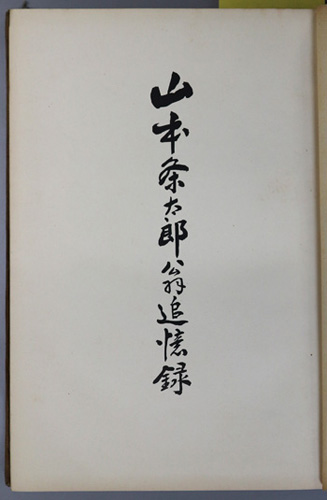 山本条太郎翁追憶録